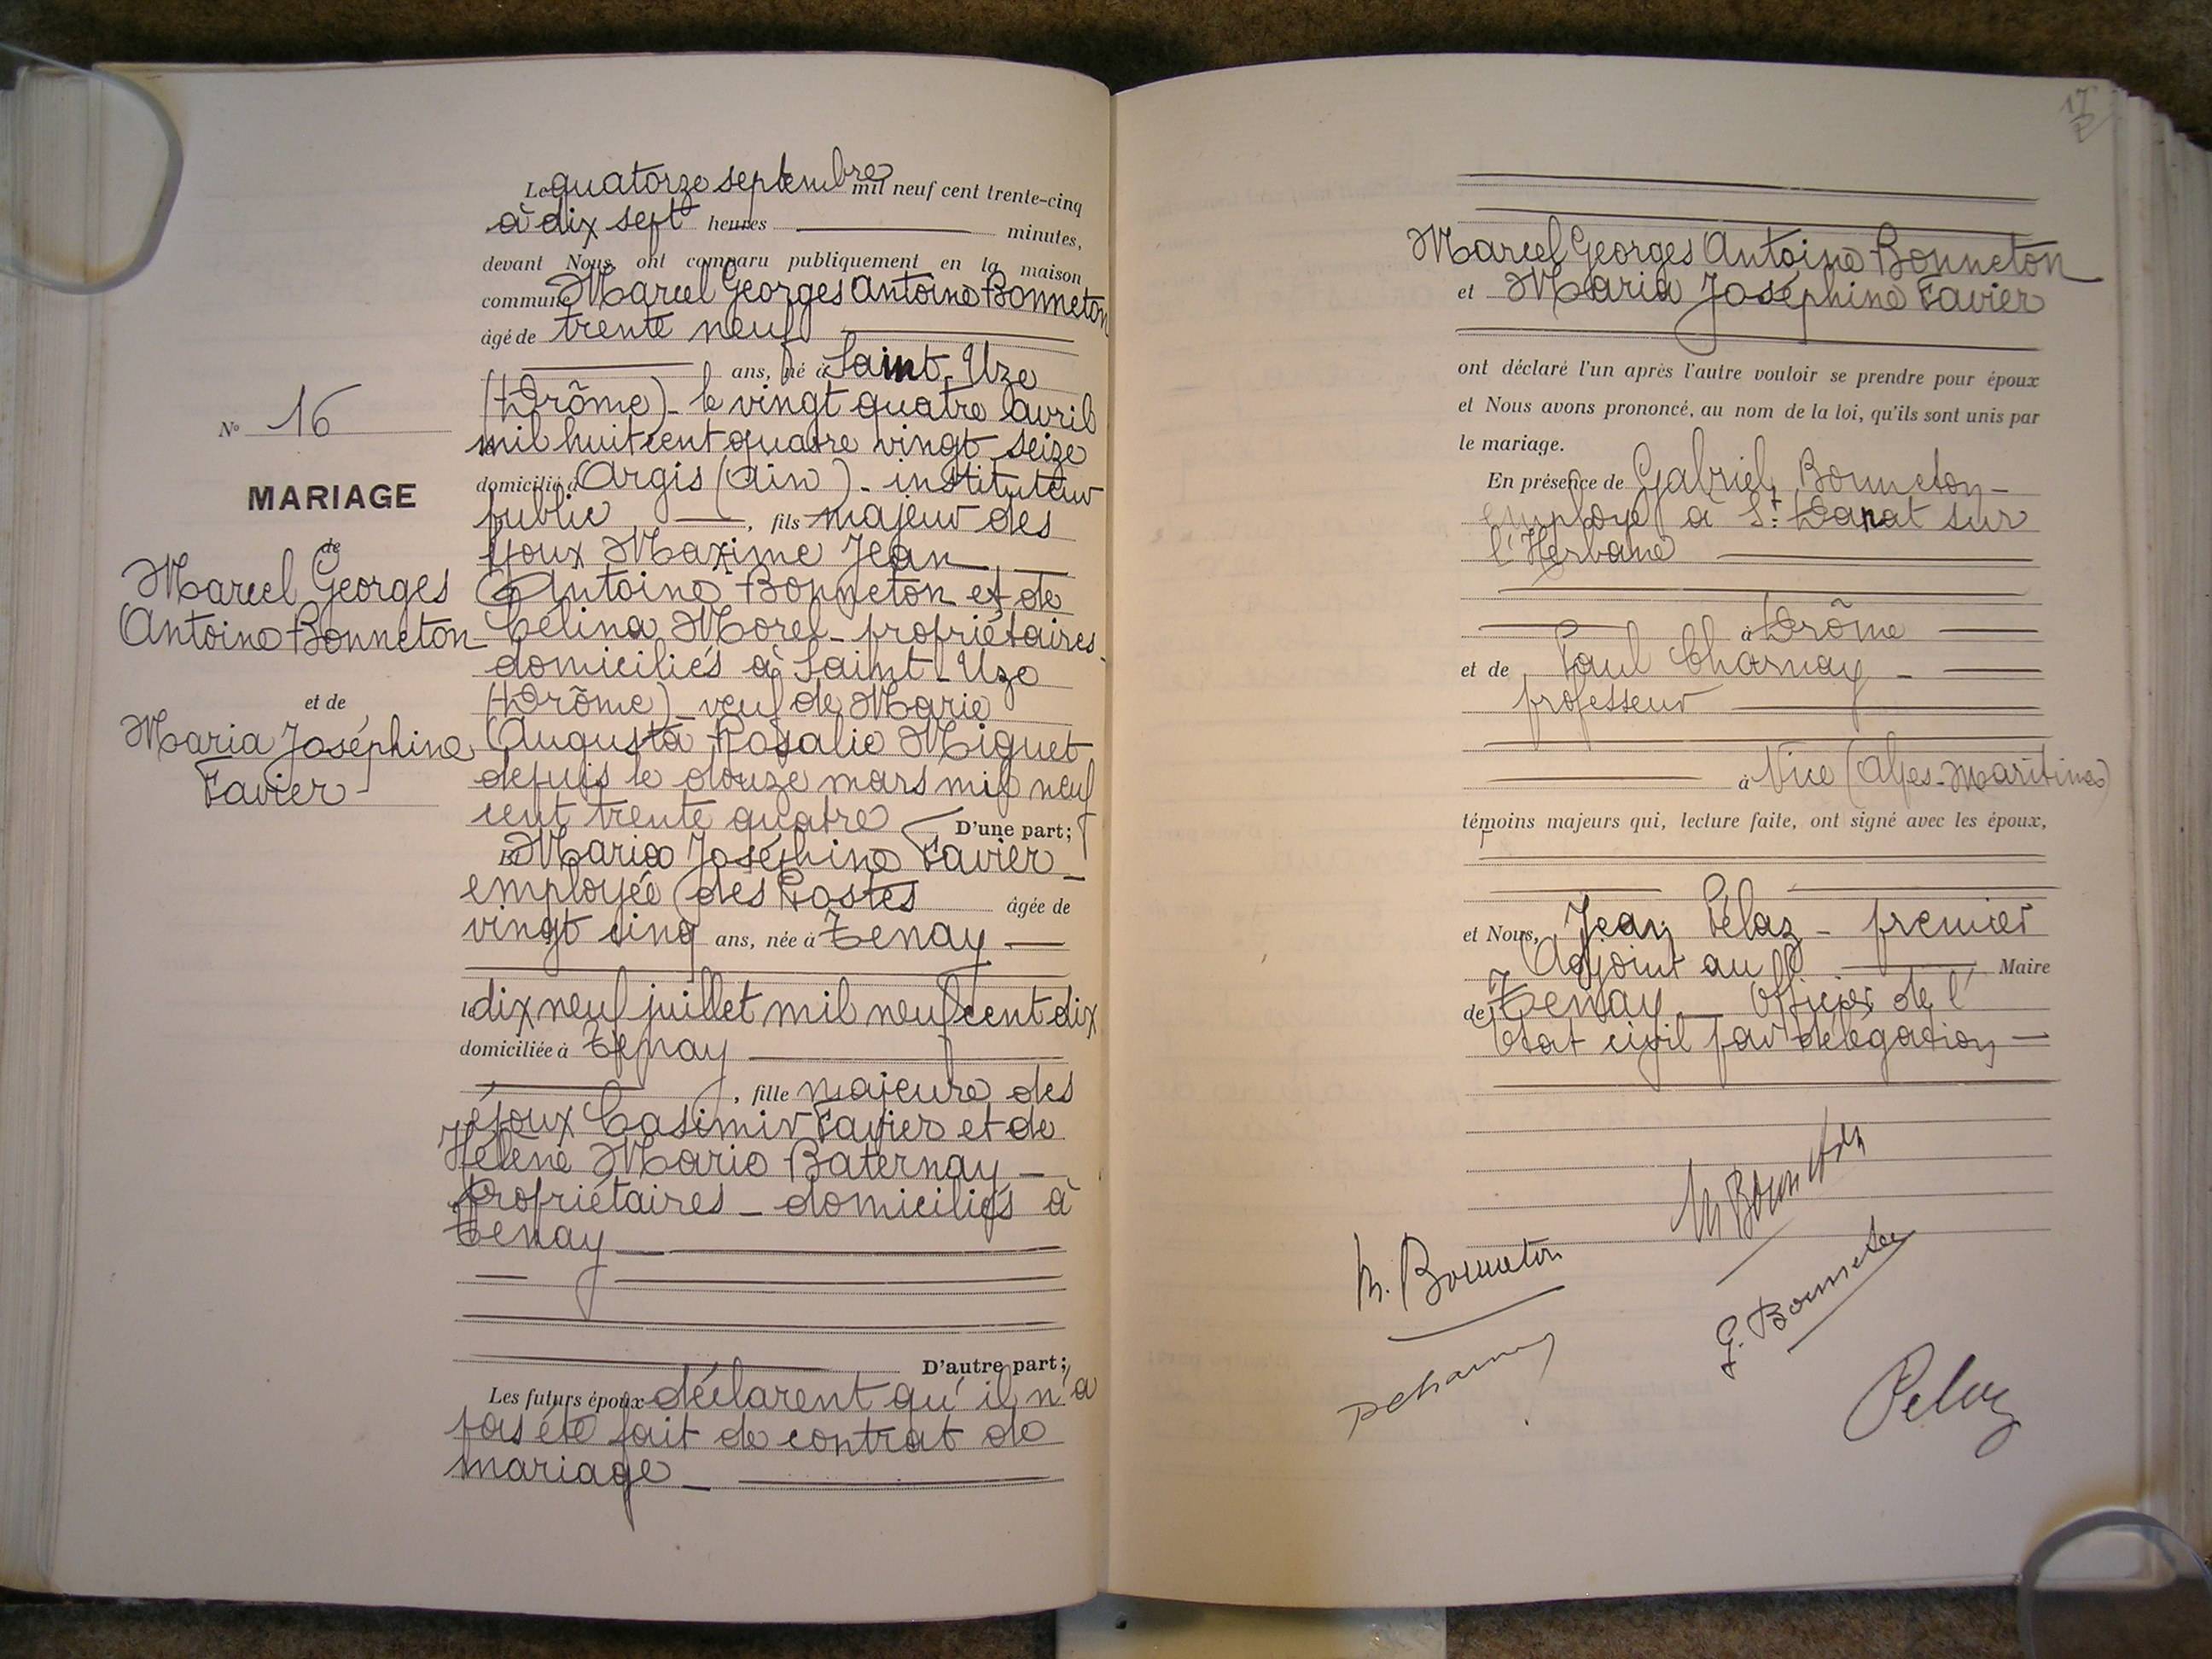 N° 16
MARIAGE
de
Marcel Georges
Antoine Bonneton
et de
Maria Joséphine
Favier
Le quatorze septembre mil neuf cent trente-cinq
à dix sept heures minutes,
devant Nous ont comparu publiquement en la maison
commune Marcel Georges Antoine Bonneton
âgé de trente neuf
ans, né à Saint-Uze
(Drôme) - le vingt quatre avril
mil huit cent quatre vingt seize
domicilié à Argis (Ain) - instituteur
public, fils majeur des
époux Maxime Jean
Antoine Bonneton et de
Célina Morel - propriétaires
domiciliés à Saint-Uze
(Drôme) - veuf de Marie
Augusta Rosalie Miguet
depuis le douze mars mil neuf
cent trente quatre D'une part;
Et Maria Joséphine Favier -
employée des Postes âgée de
vingt cinq ans, née à Tenay
le dix neuf juillet mil neuf cent dix
domiciliée à Tenay
, fille majeure des
époux Casimir Favier et de
Hélène Marie Baternay -
propriétaires - domiciliés à
Tenay
D'autre part;
Les futurs époux déclarent qu'il n'a
pas été fait de contrat de
mariage -
17
Marcel Georges Antoine Bonneton
et Maria Joséphine Favier
ont déclaré l'un après l'autre vouloir se prendre pour époux
et Nous avons prononcé, au nom de la loi, qu'ils sont unis par
le mariage.
En présence de Gabriel Bonneton -
employé à St Donat sur
l'Herbane
à Drôme
et de Paul Charnay -
professeur
à Nice (Alpes-Maritimes)
témoins majeurs qui, lecture faite, ont signé avec les époux,
et Nous, Jean Pélaz - premier
Adjoint au Maire
de Tenay - Officier de l'
Etat civil par délégation -
M Bonneton
M. Bonneton
G. Bonneton
PCharnay
Pelaz